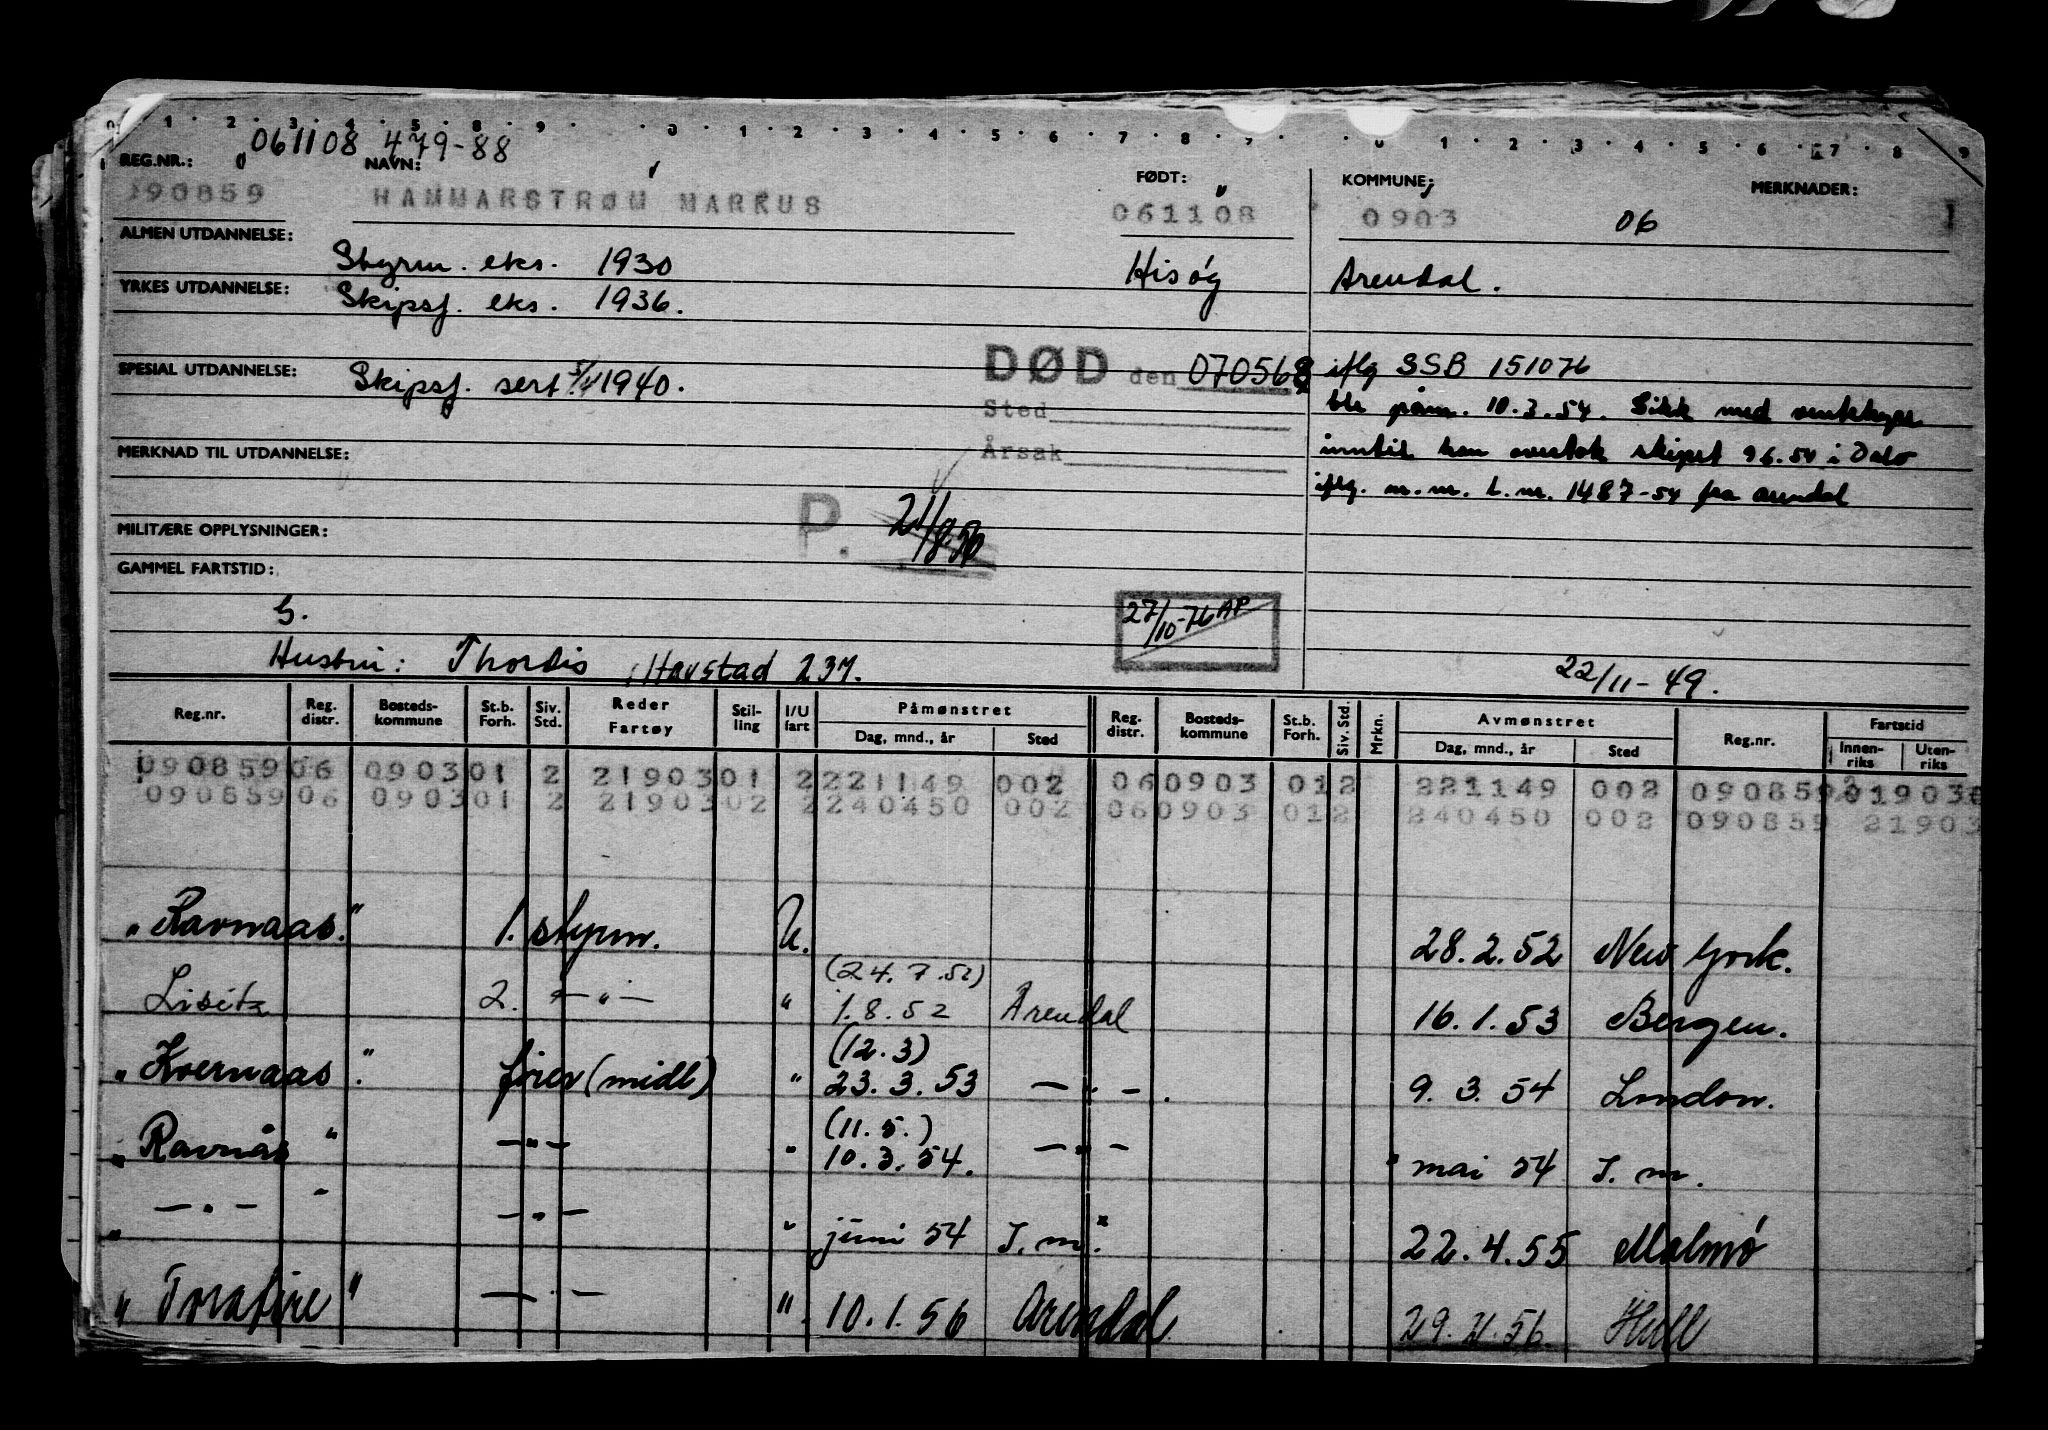 0 1 2 3 4 5 8 9 0 1 2 3 4 5 6 7 8 9 0 1 2 3 4 5 6 7 8 9
061108 479-88
REG.NR.: NAVN: FØDT: KOMMUNE: MERKNADER:
090859 HAMMARSTRØM MARKUS 061108 0903 06
ALMEN UTDANNELSE: Styrm. eks. 1930 Hisøy Arendal.
YRKES UTDANNELSE: Skipsf. eks. 1936.
SPESIAL UTDANNELSE: Skipsf. sert. 1940. DØD den 070568 iflg SSB 151076
Sted ble påm. 10.3.54. Gikk med
MERKNAD TIL UTDANNELSE: Årsak inntil han overtok skipet 9 6.54 i Oslo
iflg. m.m. L.nr. 1487-54 fra Arendal
P. 21/8 56
MILITÆRE OPPLYSNINGER:
GAMMEL FARTSTID:
G. 27/10-76 AP
Hustru: Thordis, Havstad 237. 22/11-49.
Reg.nr. Reg. distr. Bosteds- kommune St.b. Forh. Siv. Std. Reder Fartøy Stil- ling I/U fart Påmønstret Dag, mnd., år Sted Reg. distr. Bosteds- kommune St.b. Forh. Siv. Std. Mrkn. Avmønstret Dag, mnd., år Sted Reg.nr. Fartstid Innen- riks Uten- riks
090859 06 0903 01 2 21903 01 2 221149 002 06 0903 01 2 221149 002 090859 21903
090859 06 0903 01 2 21903 02 2 240450 002 06 0903 01 2 240450 002 090859 21903
"Ravnaas." 1. styrm. U. 28.2.52 New York.
(24.7.52)
Lisita 2. —"— " 1.8.52 Arendal 16.1.53 Bergen.
(12.3)
"Kvernaas". fører (midl) " 23.3.53 —"—. 9.3.54 London.
(11.5.)
"Ravnås" —"— " 10.3.54. —"— " mai 54 I.m.
" —"— " —"— " juni 54 I.m." 22.4.55 Malmø
"Torafire" —"— " 10.1.56 Arendal 29.2.56. Hull